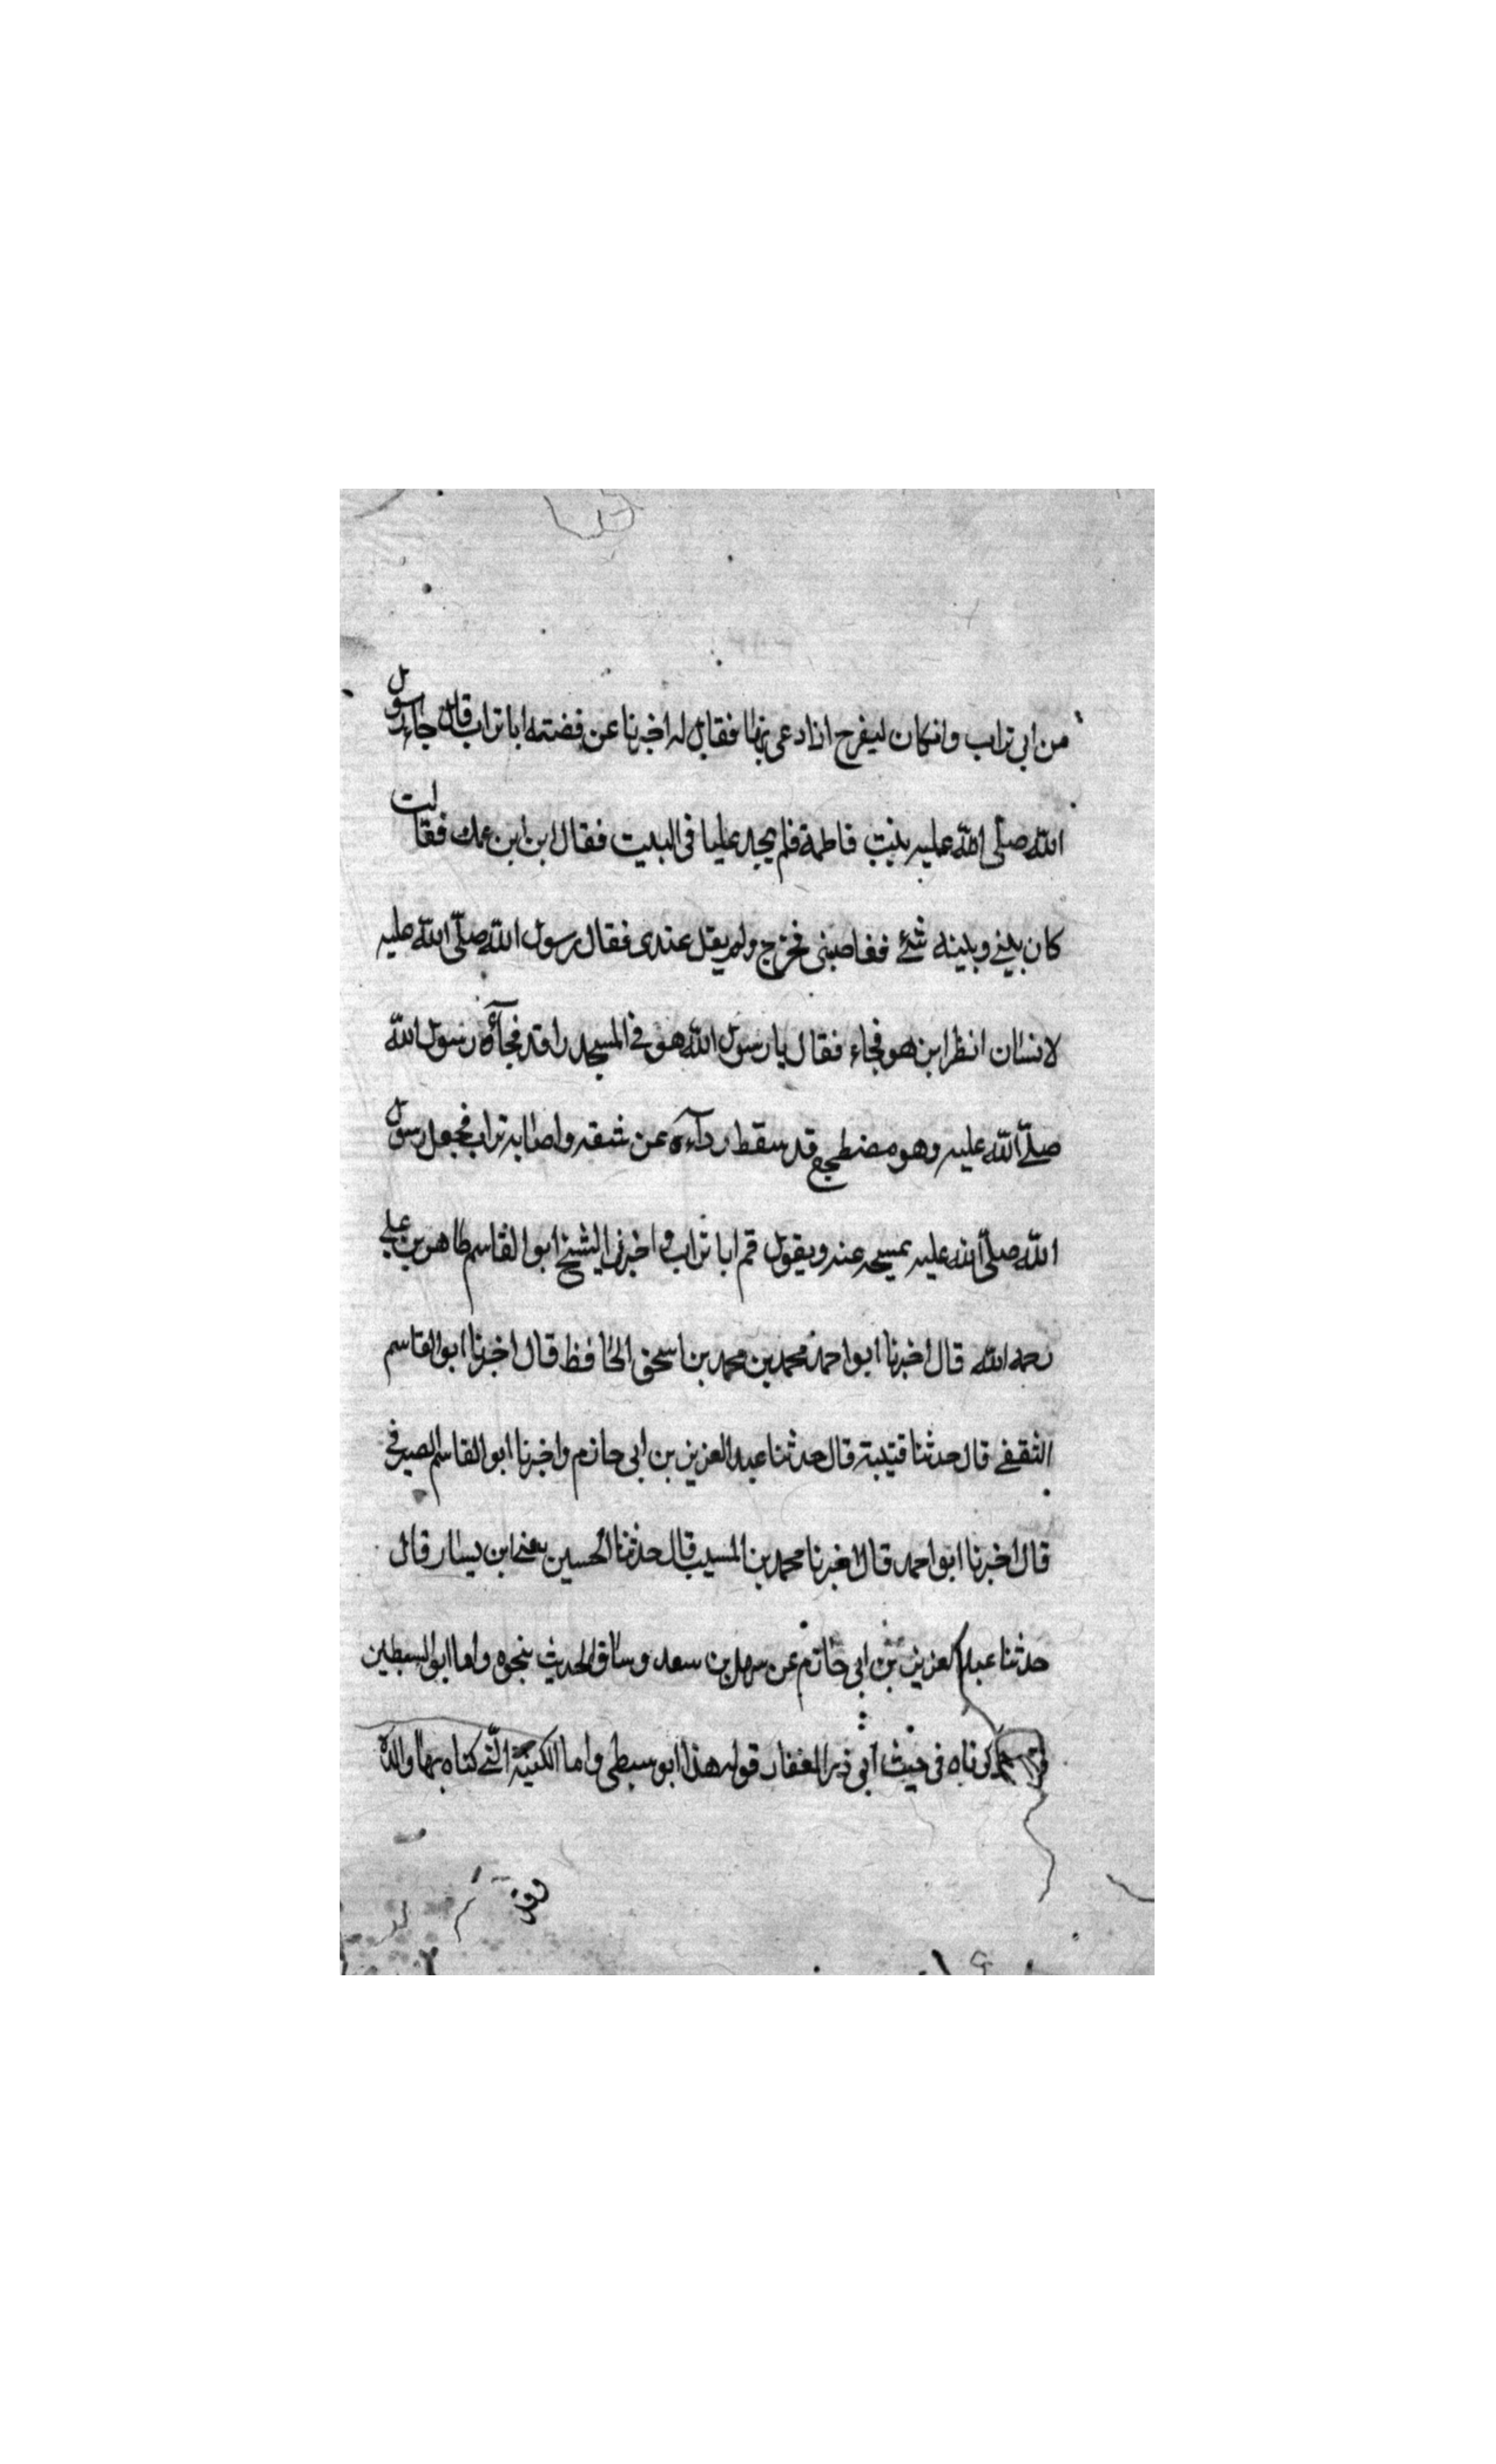 من ابى تراب وان كان ليفرح اذا دعى بها فقال له اخبرنا عن قصته ابا تراب قال جاء رسول
الله صلى الله عليه بيت فاطمة فلم يجد عليا فى البيت فقال ابن ابن عمك فقالت
كان بينى وبينه شئ فغاضبنى فخرج ولم يقل عندى فقال رسول الله صلى الله عليه
لانسان انظر ابن هو فجاء فقال يا رسول الله هو فى المسجد راقد فجآءه رسول الله
صلى الله عليه وهو مضطجع قد سقط ردآءه عن شقه واصابه تراب فجعل رسول
الله صلى الله عليه يمسحه عنه ويقول قم ابا تراب واخبرنى الشيخ ابوالقاسم طاهر بن على
رحمه الله قال اخبرنا ابو احمد محمد بن محمد بن اسحق الحافظ قال اخبرنا ابوالقاسم
الثقفى قال حدثنا قتيبة قال حدثنا عبد العزيز بن ابى حازم واخبرنا ابوالقاسم الصيرفى
قال اخبرنا ابو احمد قال اخبرنا محمد بن المسيب قال حدثنا الحسين يعنى ابن يسار قال
حدثنا عبد العزيز بن ابى حازم عن سهل بن سعد وساق الحديث بنحوه واما ابوالسبطين
ذكرناه فى حيث ابى ذر الغفار قوله هذا ابو سبطى واما الكنية التى كناه بها والده